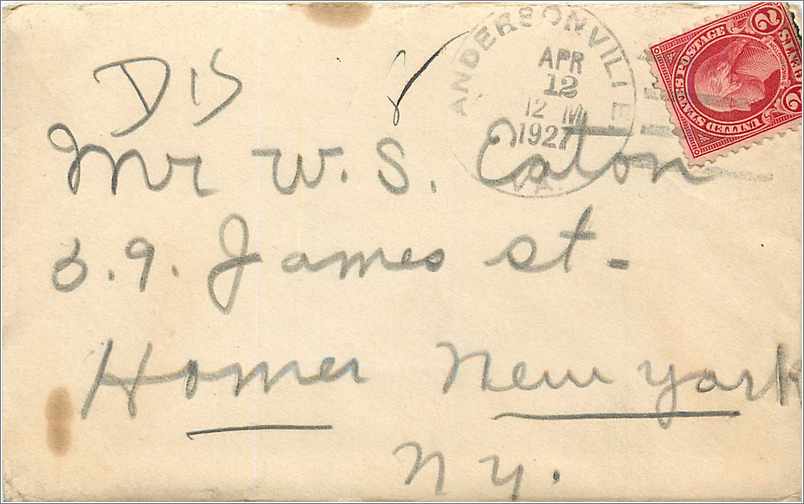 DIS
ANDERSONVILLE
APR
12
12 M
1927
VA.
UNITED STATES POSTAGE
2 CENTS 2
Mr W. S. Eaton
3.9. James st-
Homer New York
NY.